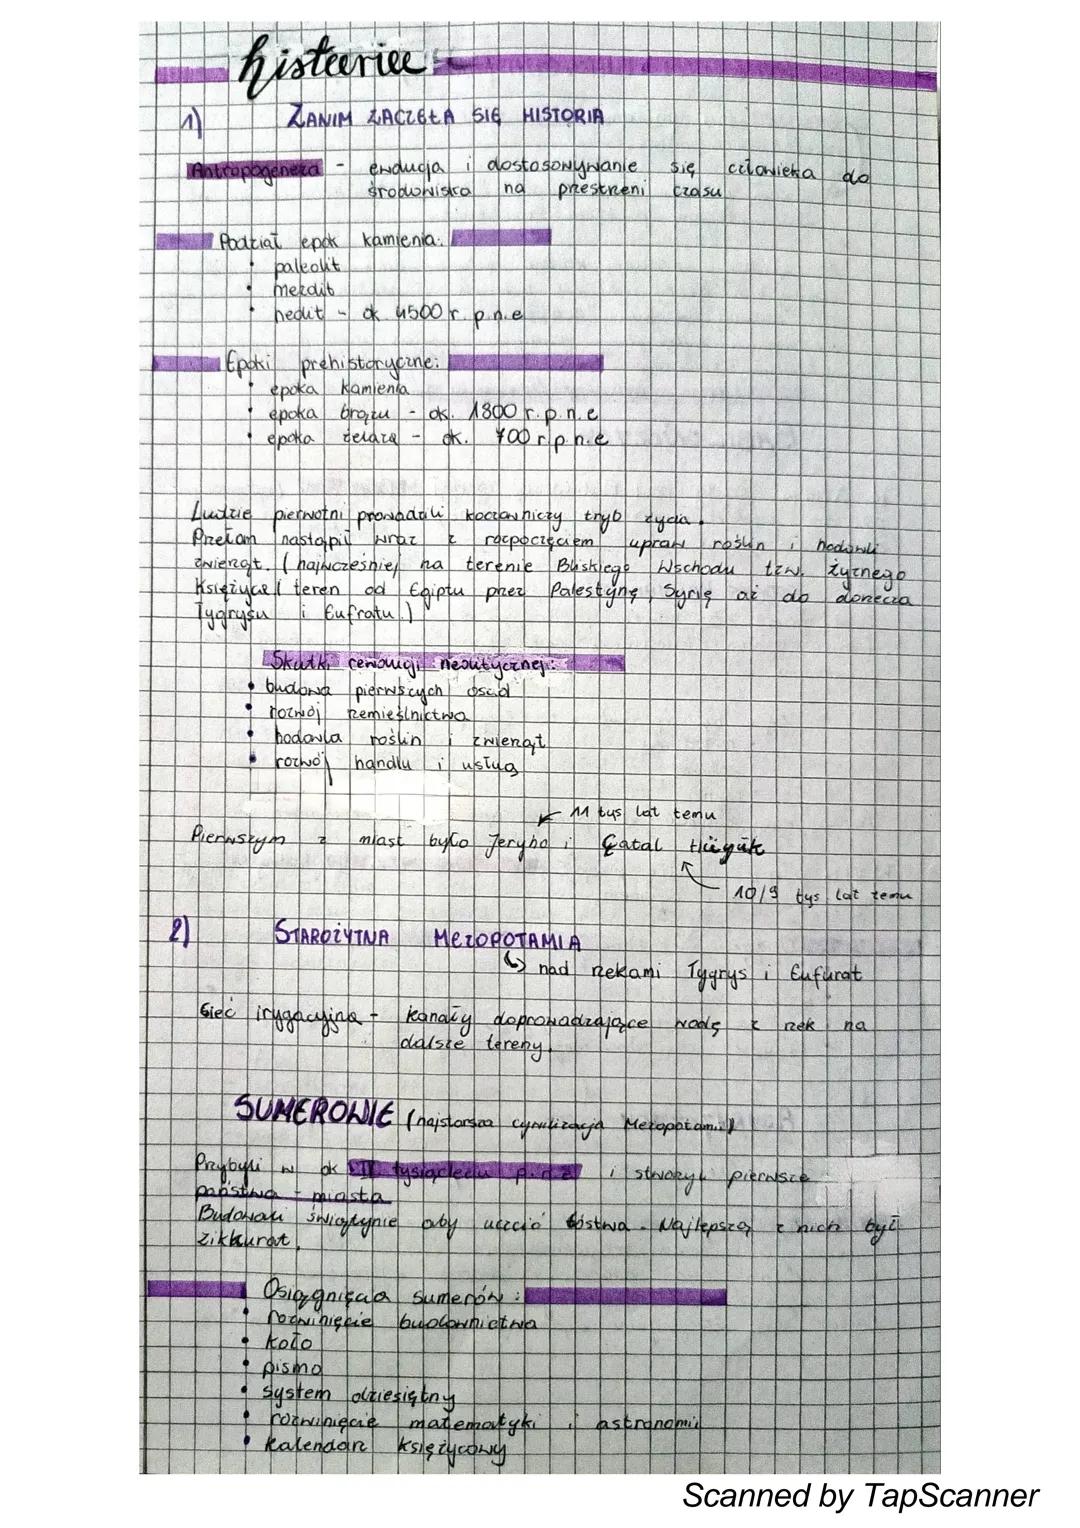 historiee
1) ZANIM ZACZĘŁA SIĘ HISTORIA
Antropogeneza - ewolucja i dostosowywanie się człowieka do
środowiska na przestrzeni czasu
Podział epok kamienia:
• paleolit
• mezolit
• neolit - ok 4500 r. p.n.e
Epoki prehistoryczne:
• epoka kamienia
• epoka brązu - ok. 1800 r. p.n.e
• epoka żelaza - ok. 700 r.p.n.e
Ludzie pierwotni prowadzili koczowniczy tryb życia.
Przełom nastąpił wraz z rozpoczęciem upraw roślin i hodowli
zwierząt. (najwcześniej na terenie Bliskiego Wschodu tzw. żyznego
Księżyca( teren od Egiptu przez Palestynę, Syrię aż do dorzecza
Tygrysu i Eufratu.)
Skutki rewolucji neolitycznej:
• budowa pierwszych osad
• rozwój rzemieślnictwa
• hodowla roślin i zwierząt
• rozwój handlu i usług
↙ 11 tys lat temu
Pierwszym z miast było Jerycho i Çatal Hüyük
10/9 tys lat temu
2) STAROŻYTNA MEZOPOTAMIA
↳ nad rzekami Tygrys i Eufurat
Sieć irygacyjna - kanały doprowadzające wodę z rzek na
dalsze tereny.
SUMEROWIE (najstarsza cywilizacja Mezopotamii)
Przybyli w ok tysiącleciu p.n.e i stworzyli pierwsze
państwa - miasta
Budowali świątynie aby uczcić bóstwa. Najlepszą z nich był
zikkurat.
Osiągnięcia sumerów:
• rozwinięcie budownictwa
• koło
• pismo
• system dziesiętny
• rozwinięcie matematyki i astronomii
• kalendarz księżycowy
Scanned by TapScanner